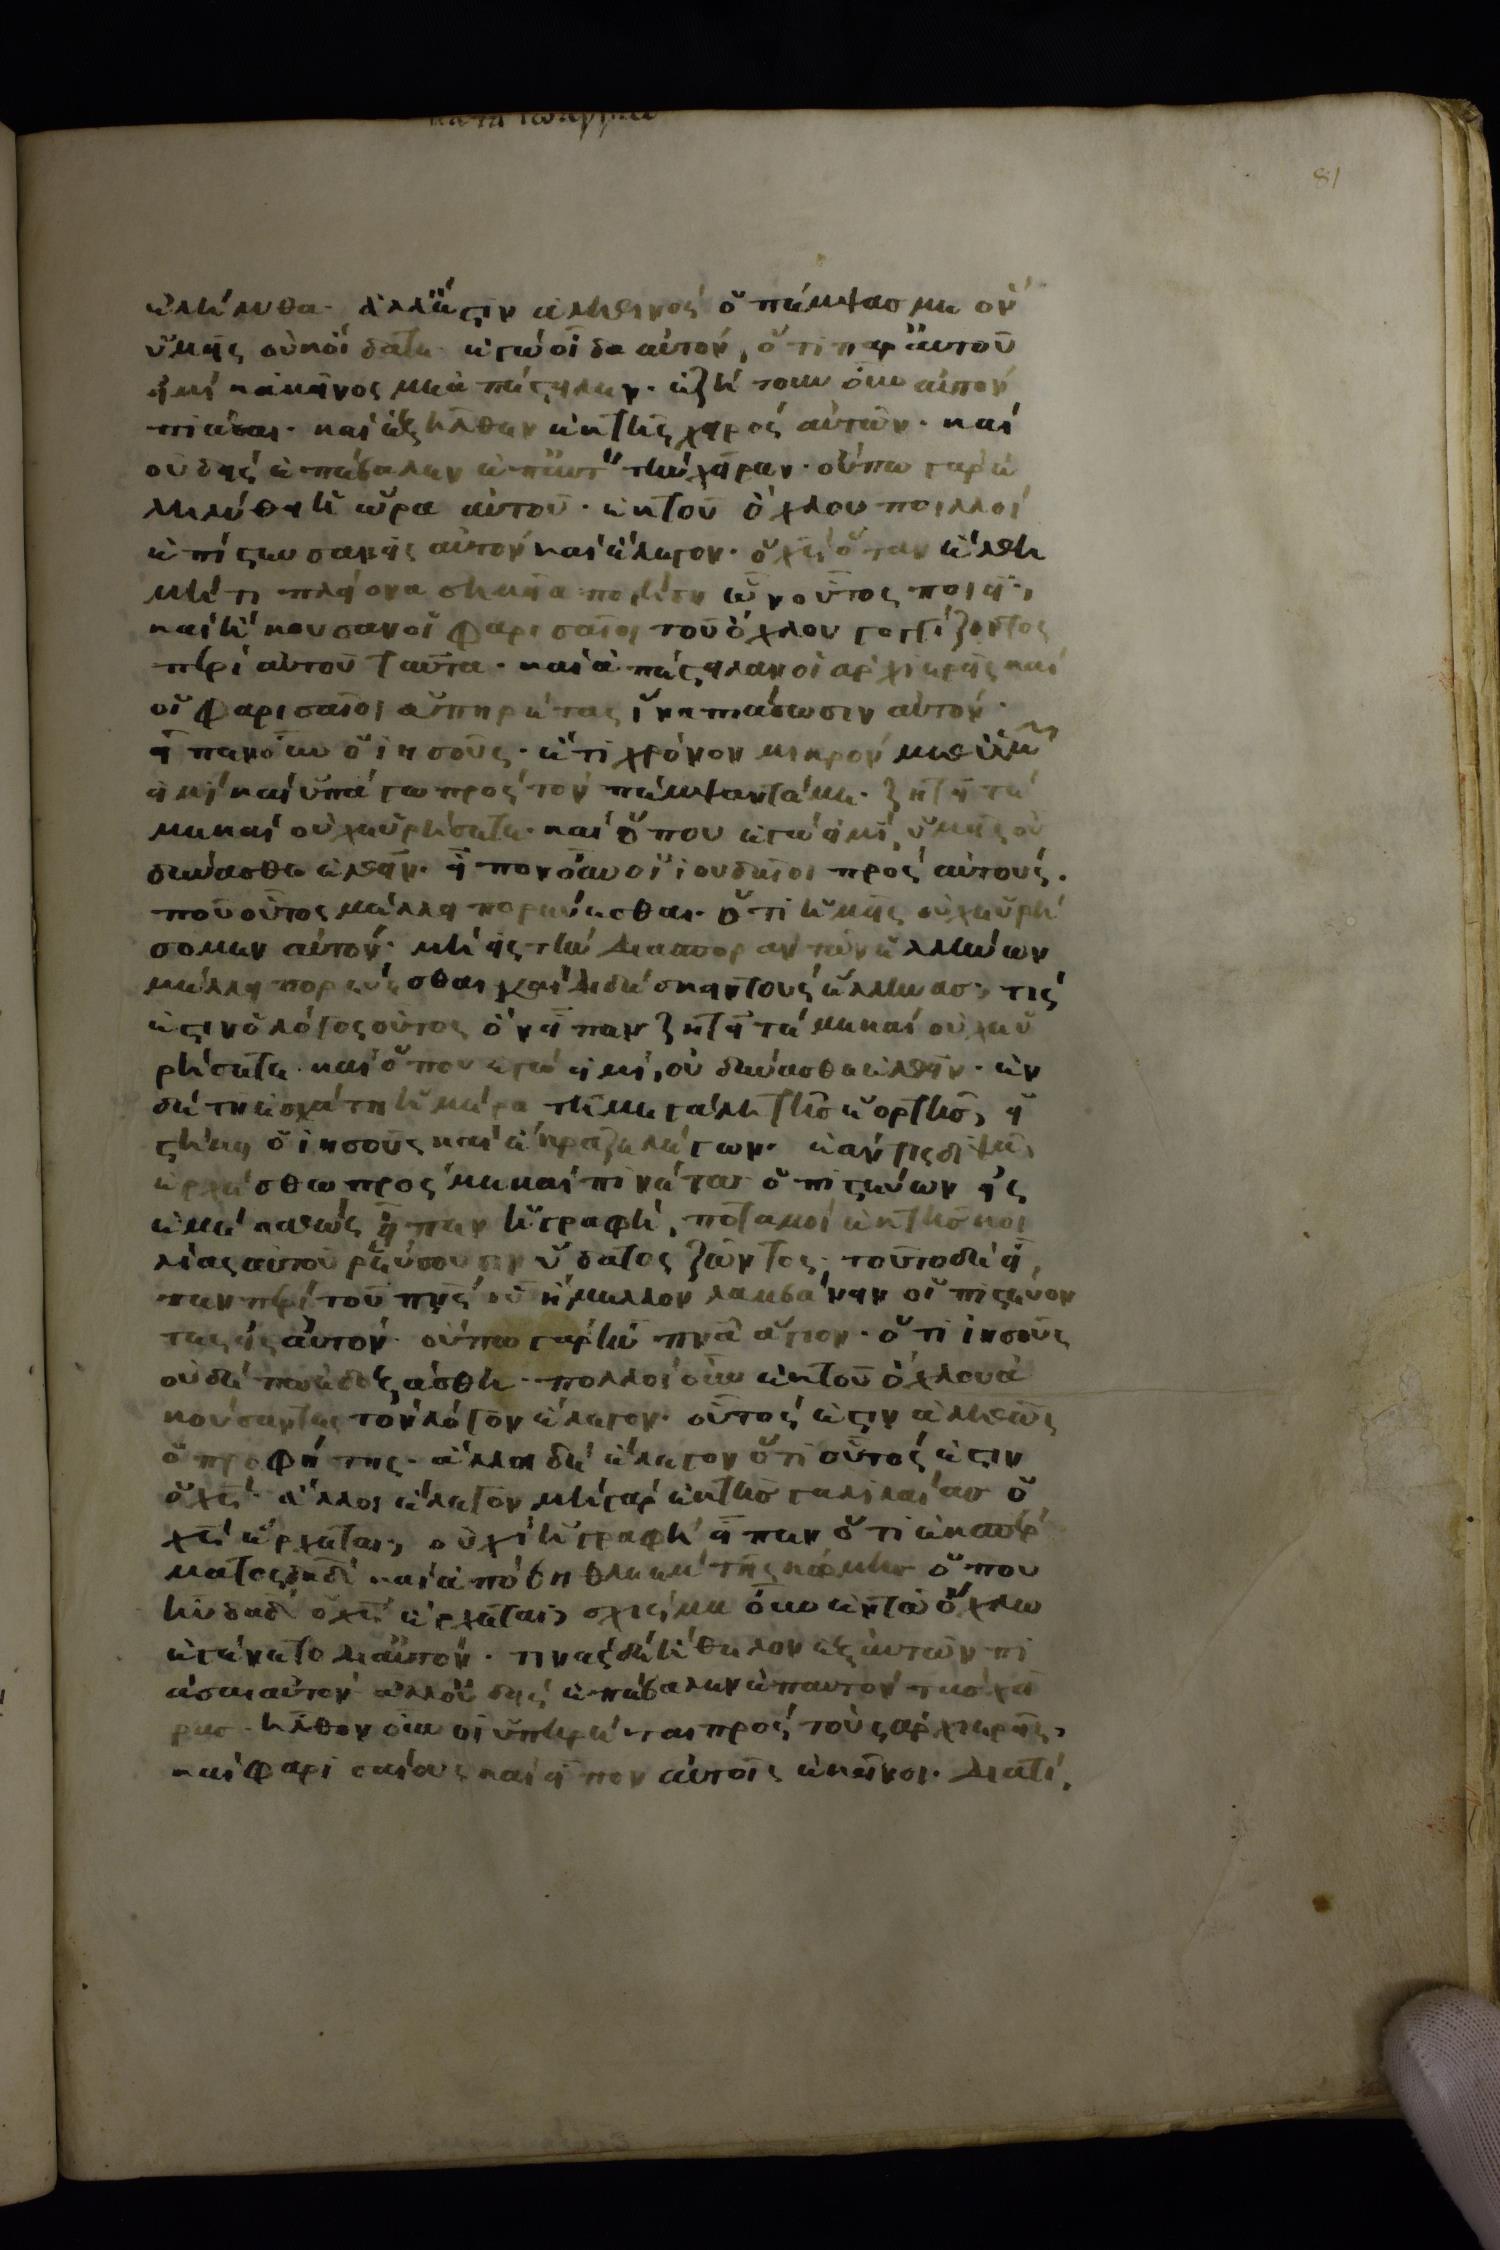 κατὰ ἰωάννην
81
ἐλήλυθα· ἀλλἔστιν ἀληθινός ὁ πέμψασ με ὃν
ὑμεῖς οὐκοίδατε· ἐγώ οἶδα αὐτόν, ὅτι παρ αὐτοῦ
εἰμί κἀκεῖνος με ἀπέστειλεν· ἐζήτουν οὖν αὐτόν
πιάσαι· καί ἐξῆλθεν ἐκτῆς χειρός αὐτῶν· καί
οὐδείς ἐπέβαλεν ἐπ αὐτὸν τὴν χεῖραν· οὔπω γαρ ἐ
ληλύθει ἡ ὥρα αὐτοῦ· ἐκτοῦ ὄχλου πολλοί
ἐπίστευσαν εἰς αὐτόν καί ἔλεγον· ὁ χς ὅταν ἔλθη
μήτι πλείονα σημεῖα ποιήσει ὧν οὗτος ποιεῖ·
καί ἤκουσαν οἱ φαρισαῖοι τοῦ ὄχλου γογγίζοντος
περί αὐτοῦ ταῦτα· καί ἀπέστειλαν οἱ αρχιερεῖς καί
οἱ φαρισαῖοι ὑπηρέτας ἵνα πιάσωσιν αὐτόν·
εἶπεν οὖν ὁ ἰησοῦς· ἔτι χρόνον μικρόν μεθ ὑμῶν
εἰμί καί ὑπάγω προς τόν πέμψαντά με· ζητεῖτέ
με καί οὐχ εὑρήσετε· καί ὅπου ἐγώ εἰμί, ὑμεῖς οὐ
δύνασθε ἐλθεῖν· εἶπον οὖν οἱ ἰουδαῖοι πρός αὐτούς·
ποῦ οὗτος μέλλει πορεύεσθαι· ὅτι ἡμεῖς οὐχ εὑρή
σομεν αὐτόν· μή εἰς τὴν διασποραν τῶν ἑλλήνων
μέλλει πορεύεσθαι καί διδάσκειν τους ἕλληνασ; τίς
ἐστιν ὁ λόγος οὗτος ὃν εἶπεν ζητεῖτέ με καί οὐχ εὑ
ρήσετε· καί ὅπου ἐγώ εἰμί, οὐ δύνασθε ἐλθεῖν· ἐν
δέ τη ἐσχάτη ἡμέρα τῆ μεγάλη τῆσ ἑορτῆσ, εἱ
στήκει ὁ ἰησοῦς καί ἔκραζε λέγων· ἐάν τις διψᾶ,
ἐρχέσθω πρός με καί πινέτω· ὁ πιστεύων εἰς
ἐμέ καθώς εἶπεν ἡ γραφή, ποταμοί ἐκτῆσ κοι
λίας αὐτοῦ ρεύσουσιν ὕδατος ζῶντος· τοῦτο δέ εἶ
πεν περί τοῦ πνς οὗ ἤμελλον λαμβάνειν οἱ πιστεύον
τες εἰς αὐτόν· οὔπω γαρ ἦν πνα ἅγιον· ὅτι ἰησοῦς
οὐδέπω ἐδοξάσθη· πολλοί οὖν ἐκτοῦ ὄχλου ἀ
κούσαντες τόν λόγον ἔλεγον· οὗτός ἐστιν ἀληθῶς
ὁ προφήτης· ἄλλοι δέ ἔλεγον ὅτι οὗτός ἐστιν
ὁ χς· ἄλλοι ἔλεγον μή γάρ ἐκτῆσ γαλιλαίασ ὁ
χς ἔρχεται; οὐχί ἡ γραφή εἶπεν ὅτι ἐκ σπέρ
ματος δαδ καί ἀπό βηθλεεμ τῆς κώμησ ὅπου
ἦν δαδ ὁ χς ἔρχεται; σχίσμα οὖν ἐντῶ ὄχλω
ἐγένετο διαὐτόν· τινες δέ ἤθελον ἐξ αὐτῶν πι
άσαι αὐτόν ἀλλοὐδείς ἐπέβαλεν ἐπαυτόν τασ χεῖ
ρασ· ἦλθον οὖν οἱ ὑπηρέται πρός τούς αρχιερεῖς,
καί φαρισαίους καί εἶπον αὐτοῖς ἐκεῖνοι· διατί,